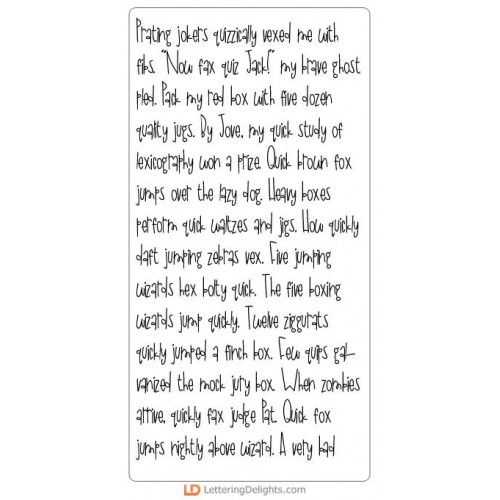 Prating jokers quizzically vexed me with
fibs. "Now fax quiz Jack!" my brave ghost
pled. Pack my red box with five dozen
quality jugs. By Jove, my quick study of
lexicography won a prize. Quick brown fox
jumps over the lazy dog. Heavy boxes
perform quick waltzes and jigs. How quickly
daft jumping zebras vex. Five jumping
wizards hex bolty quick. The five boxing
wizards jump quickly. Twelve ziggurats
quickly jumped a finch box. Few quips gal-
vanized the mock jury box. When zombies
arrive, quickly fax judge Pat. Quick fox
jumps nightly above wizard. A very bad
LD LetteringDelights.com